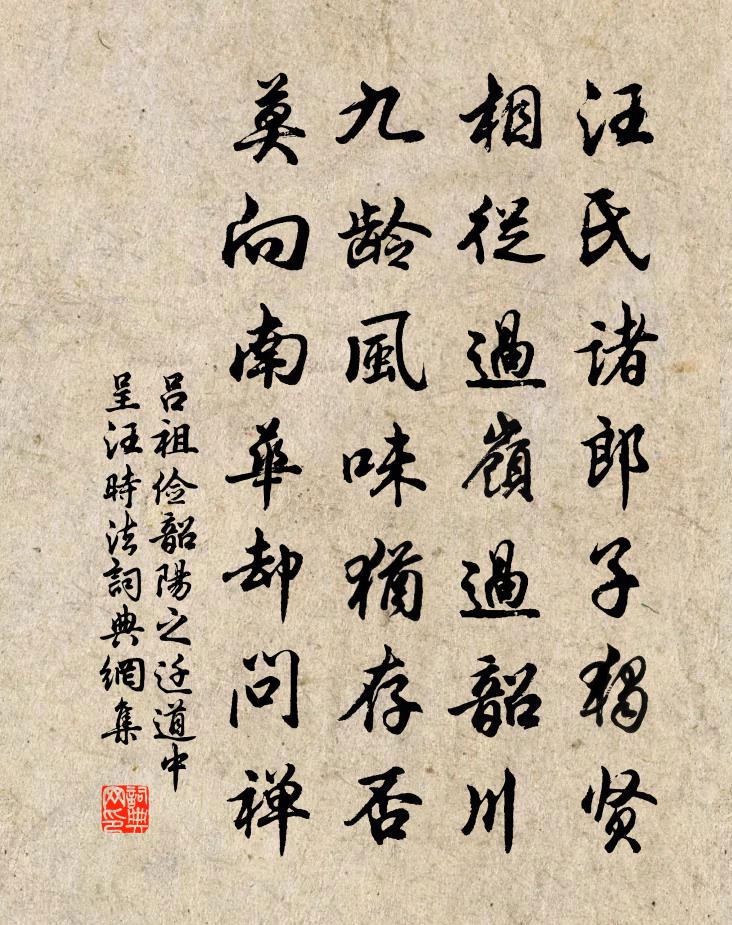 汪氏诸郎子独贤
相從過嶺過韶川
九龄風味猶存否
莫向南華却问禅
吕祖俭韶陽之迁道中
呈汪時法詞典網集
詞典
网印